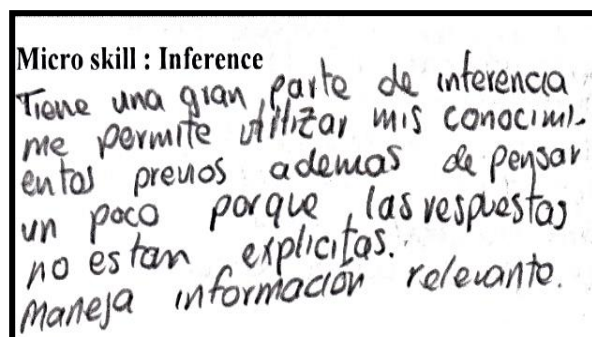 Micro skill : Inference
Tiene una gran parte de inferencia
me permite utilizar mis conocimi-
entos previos ademas de pensar
un poco porque las respuestas
no estan explicitas.
Maneja información relevante.